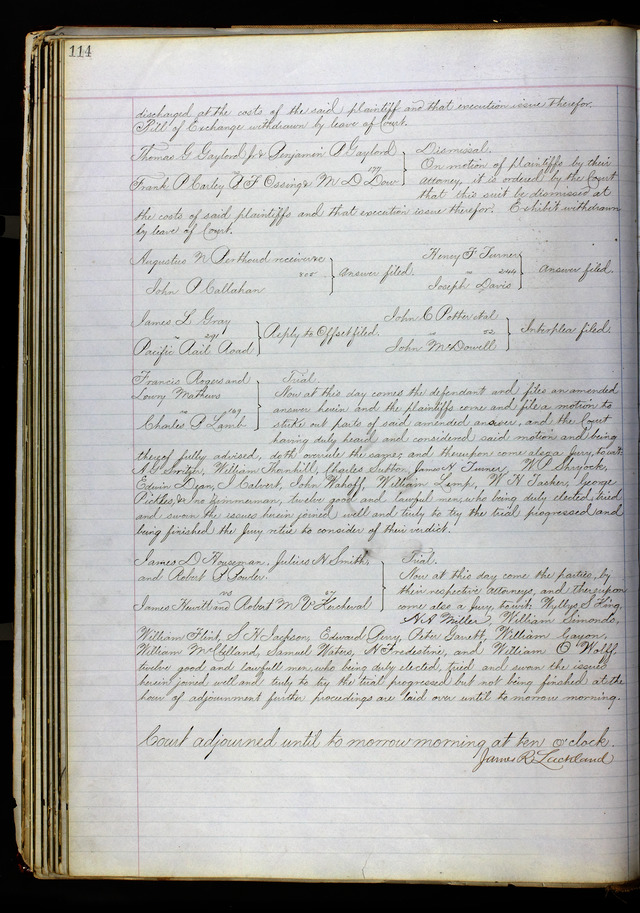 114
discharged at the costs of the said plaintiff and that execution issue therefor.
Bill of Exchange withdrawn by leave of Court.
Thomas G Gaylord Jr & Benjamin A Gaylord } Dismissal.
vs 177 On motion of plaintiffs by their
Frank P Carley A F Ossing & M D Dow attorney it is ordered by the Court
that this suit be dismissed at
the costs of said plaintiffs and that execution issue therefor. Exhibit withdrawn
by leave of Court.
Augustus N Perthoud receiver &c Henry F Turner
} Answer filed. vs 244 } Answer filed.
John P Callahan Joseph Davis
James L Gray John C Potter et al
vs 291 } Reply to Offset filed. vs 52 } Interplea filed.
Pacific Rail Road John McDowell
Francis Rogers and } Trial.
Lowry Mathews Now at this day comes the defendant and files an amended
vs answer herein and the plaintiffs come and file a motion to
Charles P Lamb strike out parts of said amended answer, and the Court
having duly heard and considered said motion and being
thereof fully advised, doth overrule the same; and thereupon come also a Jury, to wit:
William Thornhill, Charles Sutton, James N Turner, W P Shryock,
Edwin Dean, J Calvert, John Wahoff William Lemp, W H Tasker, George
Pickles & Zimmerman, twelve good and lawful men, who being duly elected, tried
and sworn the issues herein joined well and truly to try the trial progressed and
being finished the Jury retire to consider of their verdict.
James D Houseman, Julius H Smith, } Trial.
and Robert P Fowler Now at this day come the parties, by
vs 27 their respective attorneys, and thereupon
James Hewitt and Robert M V Kercheval come also a Jury, to wit: Wyllys S King,
N A Miller, William Simonds,
William Flint, S K Jackson, Edward Perry, Peter Garett, William Gayon,
William McClelland, Samuel Waters, N Fredestine, and William O Wolff
twelve good and lawfull men, who being duly elected, tried and sworn the issues
herein joined well and truly to try the trial progressed but not being finished at the
hour of adjournment further proceedings are laid over until to morrow morning.
Court adjourned until to morrow morning at ten o'clock.
James R Lackland